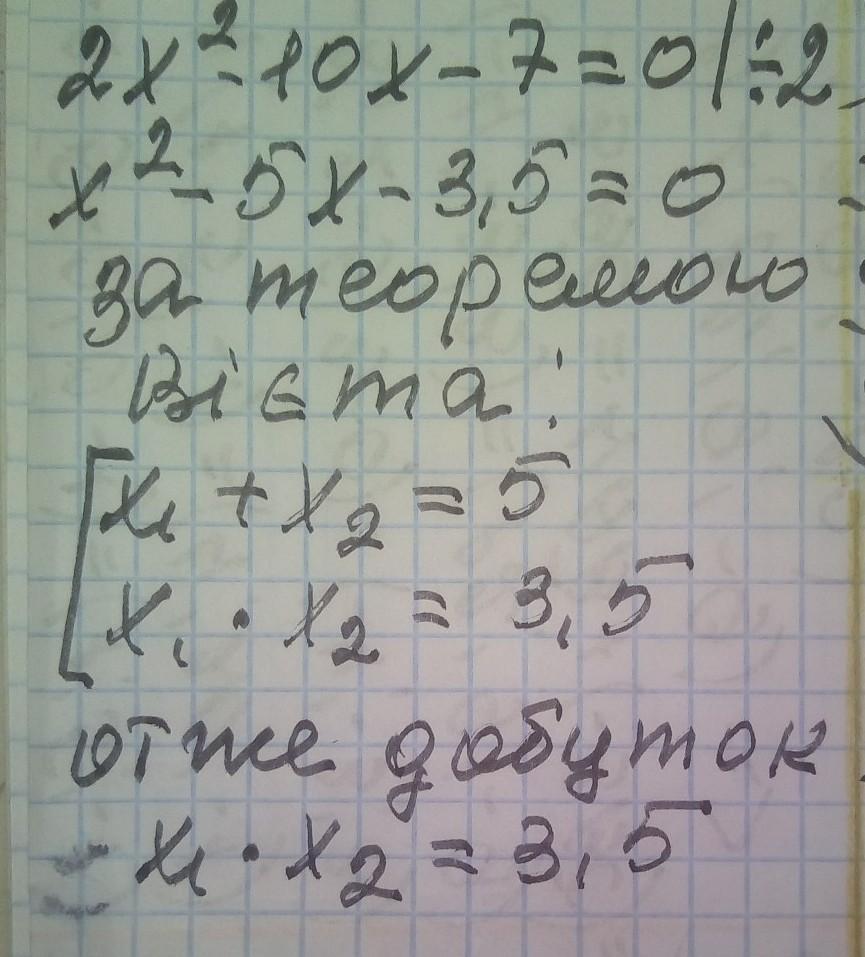 2x²-10x-7=0|÷2
x²-5x-3,5=0
за теоремою
Вієта:
[x₁+x₂=5
x₁·x₂=3,5
отже добуток
x₁·x₂=3,5